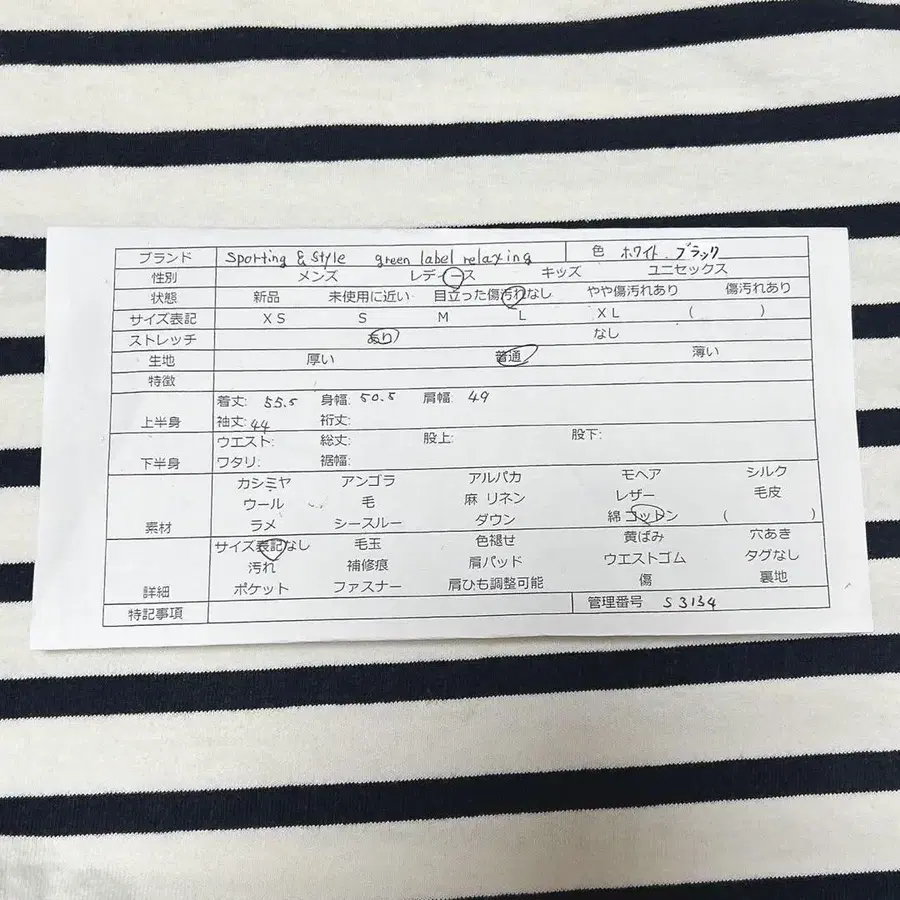 ブランド Sporting & Style green label relaxing 色 ホワイト.ブラック
性別 メンズ レディース キッズ ユニセックス
状態 新品 未使用に近い 目立った傷汚れなし やや傷汚れあり 傷汚れあり
サイズ表記 XS S M L XL ( )
ストレッチ あり なし
生地 厚い 普通 薄い
特徴
上半身 着丈: 55.5 身幅: 50.5 肩幅: 49
袖丈: 44 裄丈:
下半身 ウエスト: 総丈: 股上: 股下:
ワタリ: 裾幅:
素材 カシミヤ アンゴラ アルパカ モヘア シルク
ウール 毛 麻 リネン レザー 毛皮
ラメ シースルー ダウン 綿 コットン ( )
詳細 サイズ表記なし 毛玉 色褪せ 黄ばみ 穴あき
汚れ 補修痕 肩パッド ウエストゴム タグなし
ポケット ファスナー 肩ひも調整可能 傷 裏地
特記事項 管理番号 S3134